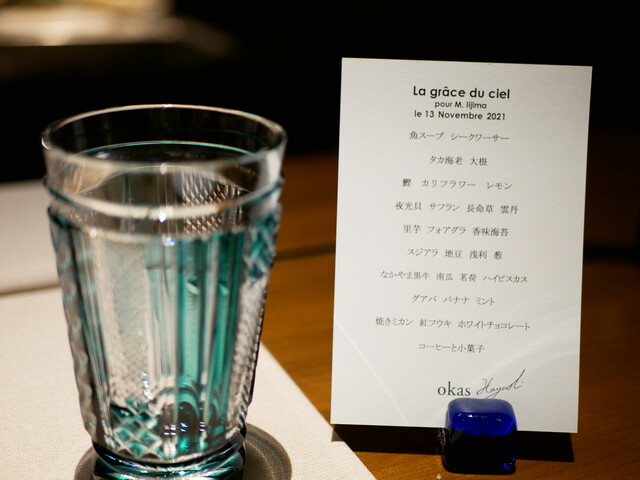 La grâce du ciel
pour M. Iijima
le 13 Novembre 2021
魚スープ シークワーサー
タカ海老 大根
鰹 カリフラワー レモン
夜光貝 サフラン 長命草 雲丹
里芋 フォアグラ 香味海苔
スジアラ 地豆 浅利 葱
なかやま黒牛 南瓜 茗荷 ハイビスカス
グアバ バナナ ミント
焼きミカン 紅フウキ ホワイトチョコレート
コーヒーと小菓子
okas Hayashi